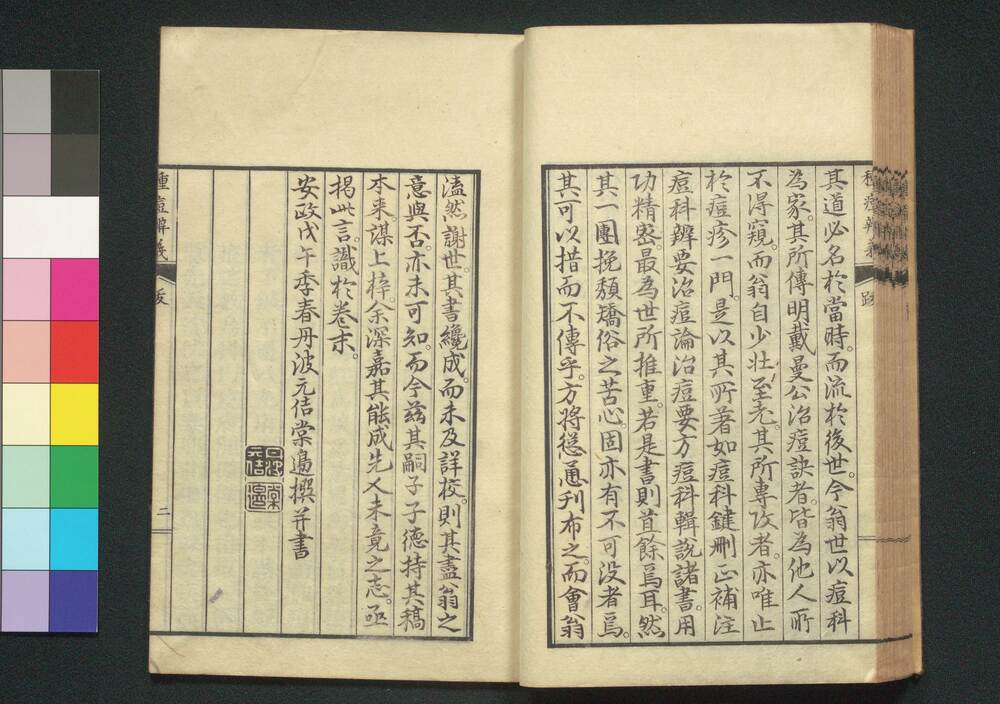 其道必名於當時。而流於後世。今翁世以痘科
為家。其所傳明戴曼公治痘訣者。皆為他人所
不得窺。而翁自少壯至老。其所專攻者。亦唯止
於痘疹一門。是以其所著如痘科鍵刪正補注
痘科辨要治痘論治痘要方痘科輯說諸書。用
功精密。最為世所推重。若是書則苴餘焉耳。然
其一團挽頹矯俗之苦心。固亦有不可没者焉。
其可以措而不傳乎。方將慫慂刊布之。而會翁
溘然謝世。其書纔成。而未及詳挍。則其盡翁之
意與否。亦未可知。而今茲其嗣子子德持其稿
本来。謀上梓。余深嘉其能成先人未竟之志。亟
揭此言。識於卷末。
安政戊午季春丹波元佶棠邊撰并書
元佶
種痘辨義
跋
二